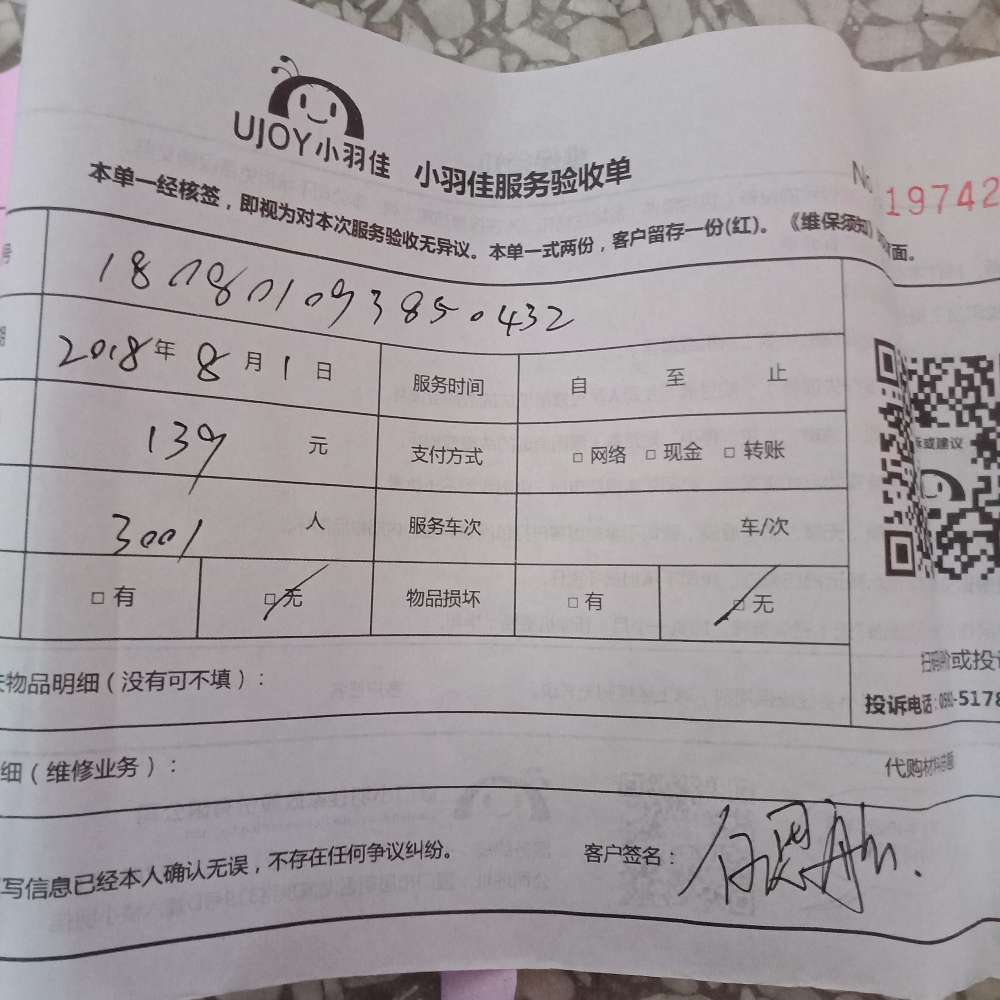 UJOY小羽佳 小羽佳服务验收单
No 19742
本单一经核签，即视为对本次服务验收无异议。本单一式两份，客户留存一份(红)。《维保须知》 面。
号 180801093850432
2018年8月1日 服务时间 自 至 止
139 元 支付方式 □ 网络 □ 现金 □ 转账
3001 人 服务车次 车/次
□ 有 □ 无 物品损坏 □ 有 □ 无
或建议
物品明细（没有可不填）：
或投
投诉电话：0591-5178
细（维修业务）：
代购材料
写信息已经本人确认无误，不存在任何争议纠纷。
客户签名：